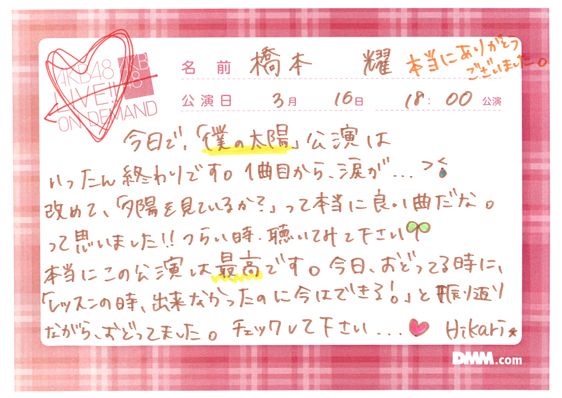 AKB48 LIVE!! ON DEMAND
AKB48
名前 橋本 耀 本当にありがとうございました。
公演日 3月 16日 18:00 公演
今日で、「僕の太陽」公演は
いったん終わりです。1曲目から、涙が...
改めて、「夕陽を見ているか?」って本当に良い曲だな。
って思いました!!つらい時、聴いてみて下さい
本当にこの公演は最高です。今日、おどってる時に、
「レッスンの時、出来なかったのに今はできる!」と振り返り
ながら、おどってました。チェックして下さい... Hikari
DMM.com